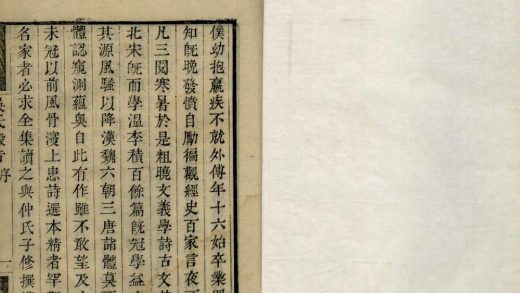 僕幼抱羸疾不就外傅年十六始卒業
知旣晩發憤自勵徧觀經史百家言夜
凡三閱寒暑於是粗曉文義學詩古文
北宋旣而學溫李積百餘篇旣冠學益
其源風騷以降漢魏六朝三唐諸體莫
體認窺測蘊奧自此有作雖不敢望及
未冠以前風骨淩上忠詩選本精者罕
名家者必求全集讀之與仲氏子修撰
音序